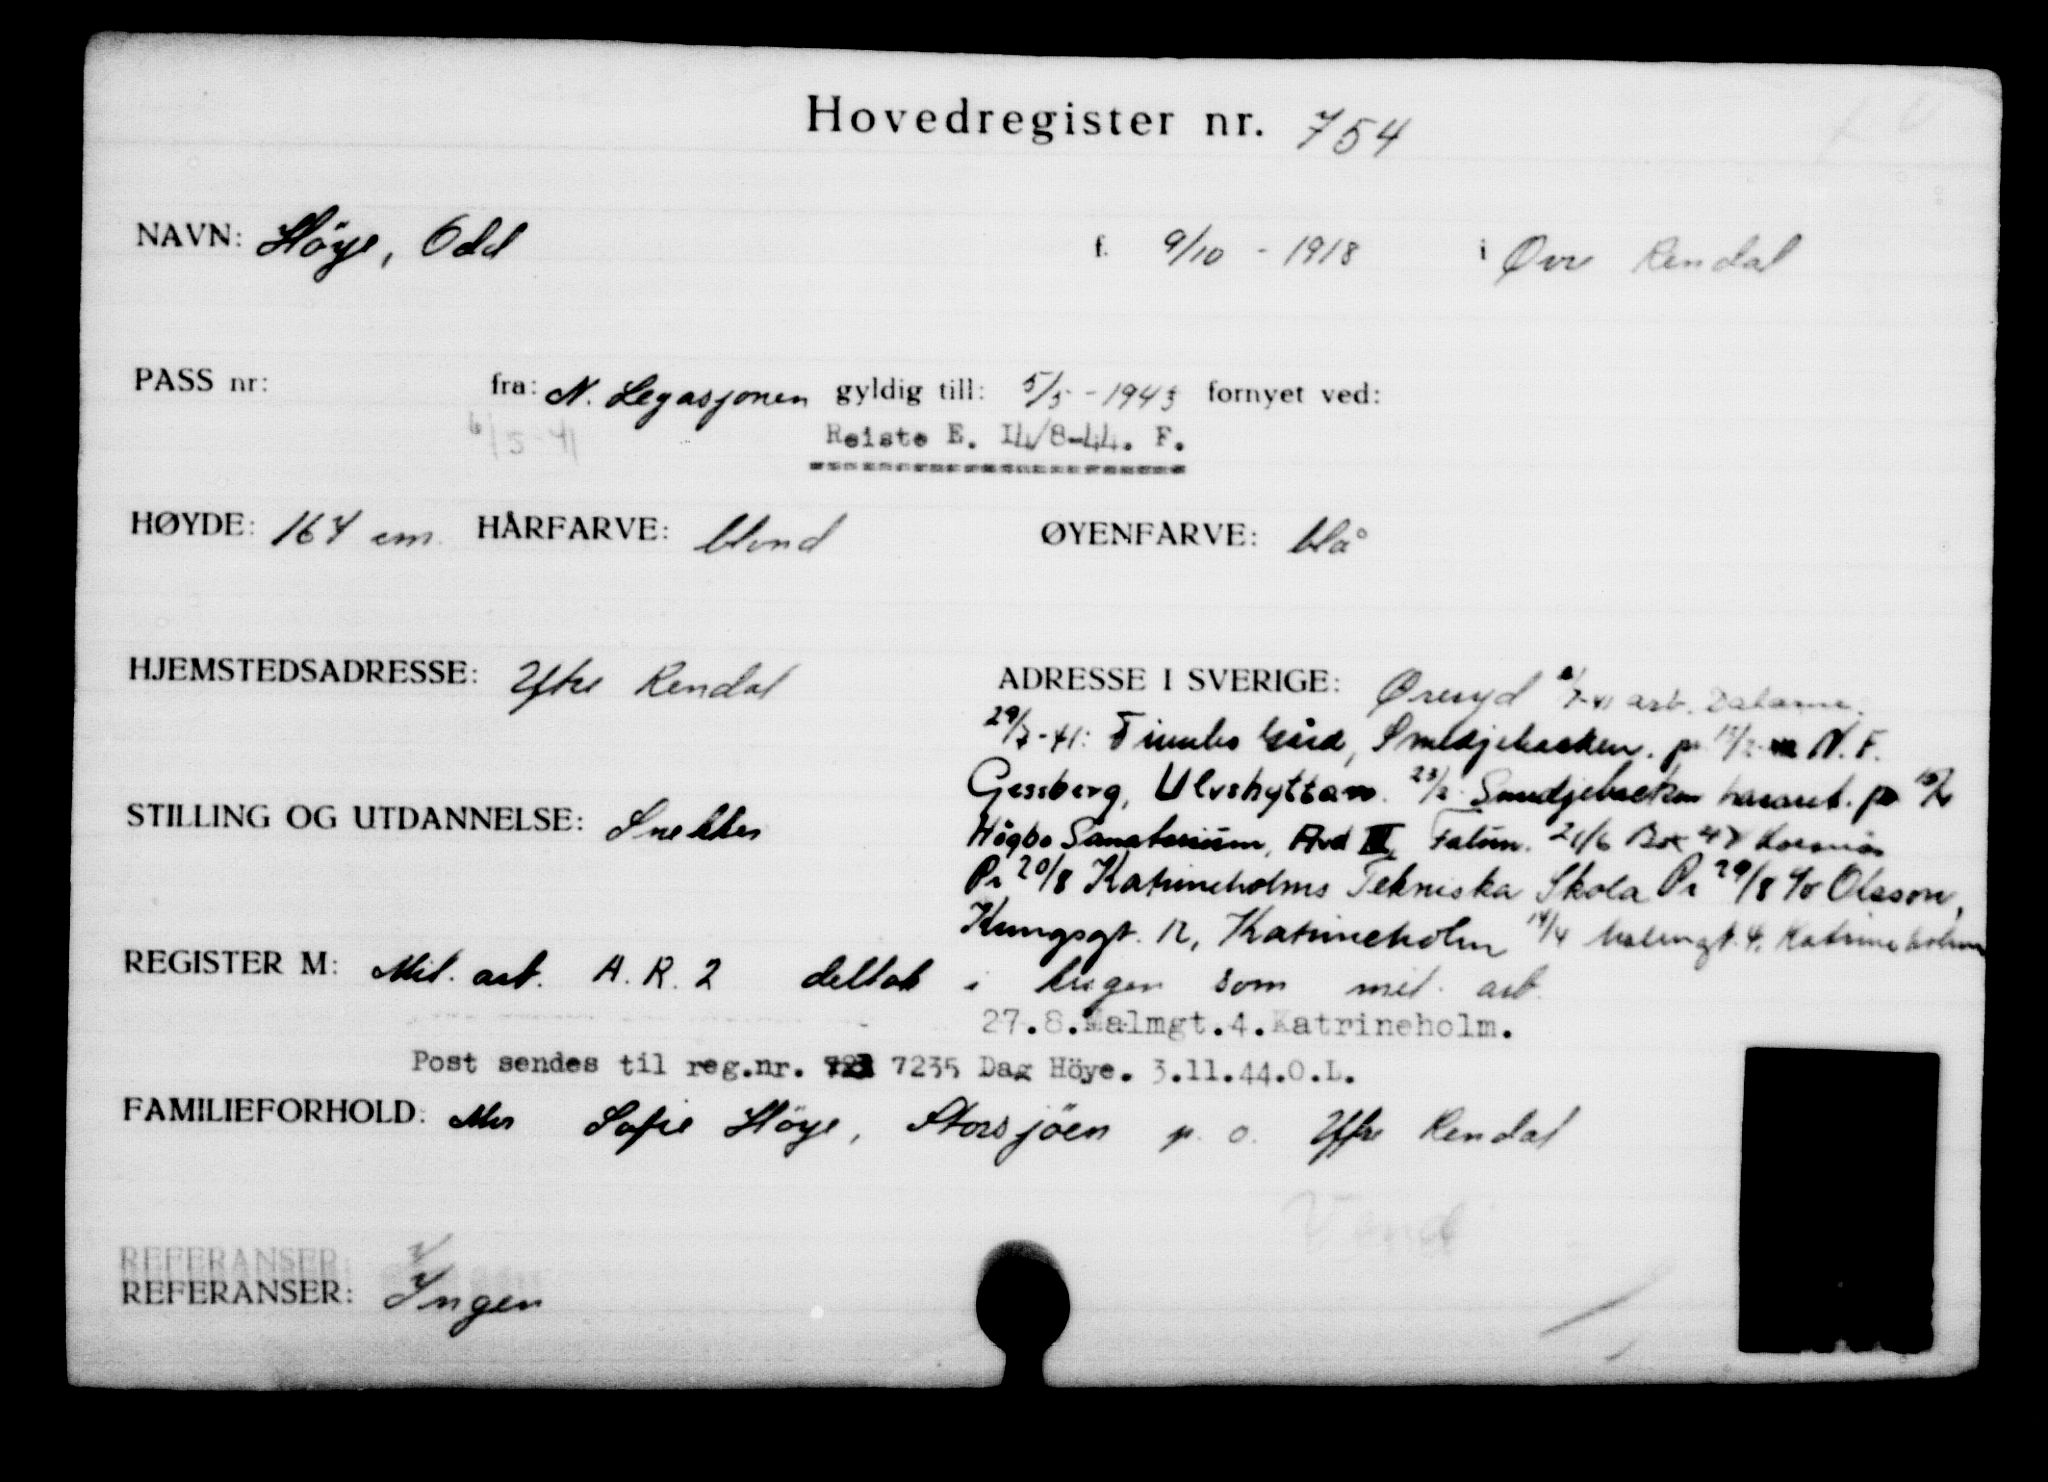 Hovedregister nr. 754
NAVN: Höye, Odd f. 9/10 - 1918 i Øvre Rendal
PASS nr: fra: N. Legasjonen gyldig till: 5/5 - 1943 fornyet ved:
6/5-41 Reiste E. I4/8-44. F.
HØYDE: 164 cm. HÅRFARVE: blond ØYENFARVE: blå
HJEMSTEDSADRESSE: Yttre Rendal ADRESSE I SVERIGE: Øreryd arb. Dalarne.
29/7-41: Gård, Smedjebacken. pr N. F.
Gessberg, Ulvshyttan. 23/2 Smedjebacken lasaret. pr
STILLING OG UTDANNELSE: Snekker
Högbo Sanatorium, Avd III, Falun. 21/6 Box 47 Korsnäs
Pr 20/8 Katrineholms Tekniska Skola Pr 29/8 c/o Olsson,
Kungsgt. 12, Katrineholm 14/4 Malmgt. 4. Katrineholm
REGISTER M: Mil. arb. A. R. 2 deltok i krigen som mil. arb.
27.8.Malmgt.4.Katrineholm.
Post sendes til reg.nr. 7235 Dag Höye. 3.11.44.O.L.
FAMILIEFORHOLD: Mor Sofie Höye, Storsjöen p. o. Yttre Rendal
Vend
REFERANSER:
REFERANSER: Ingen